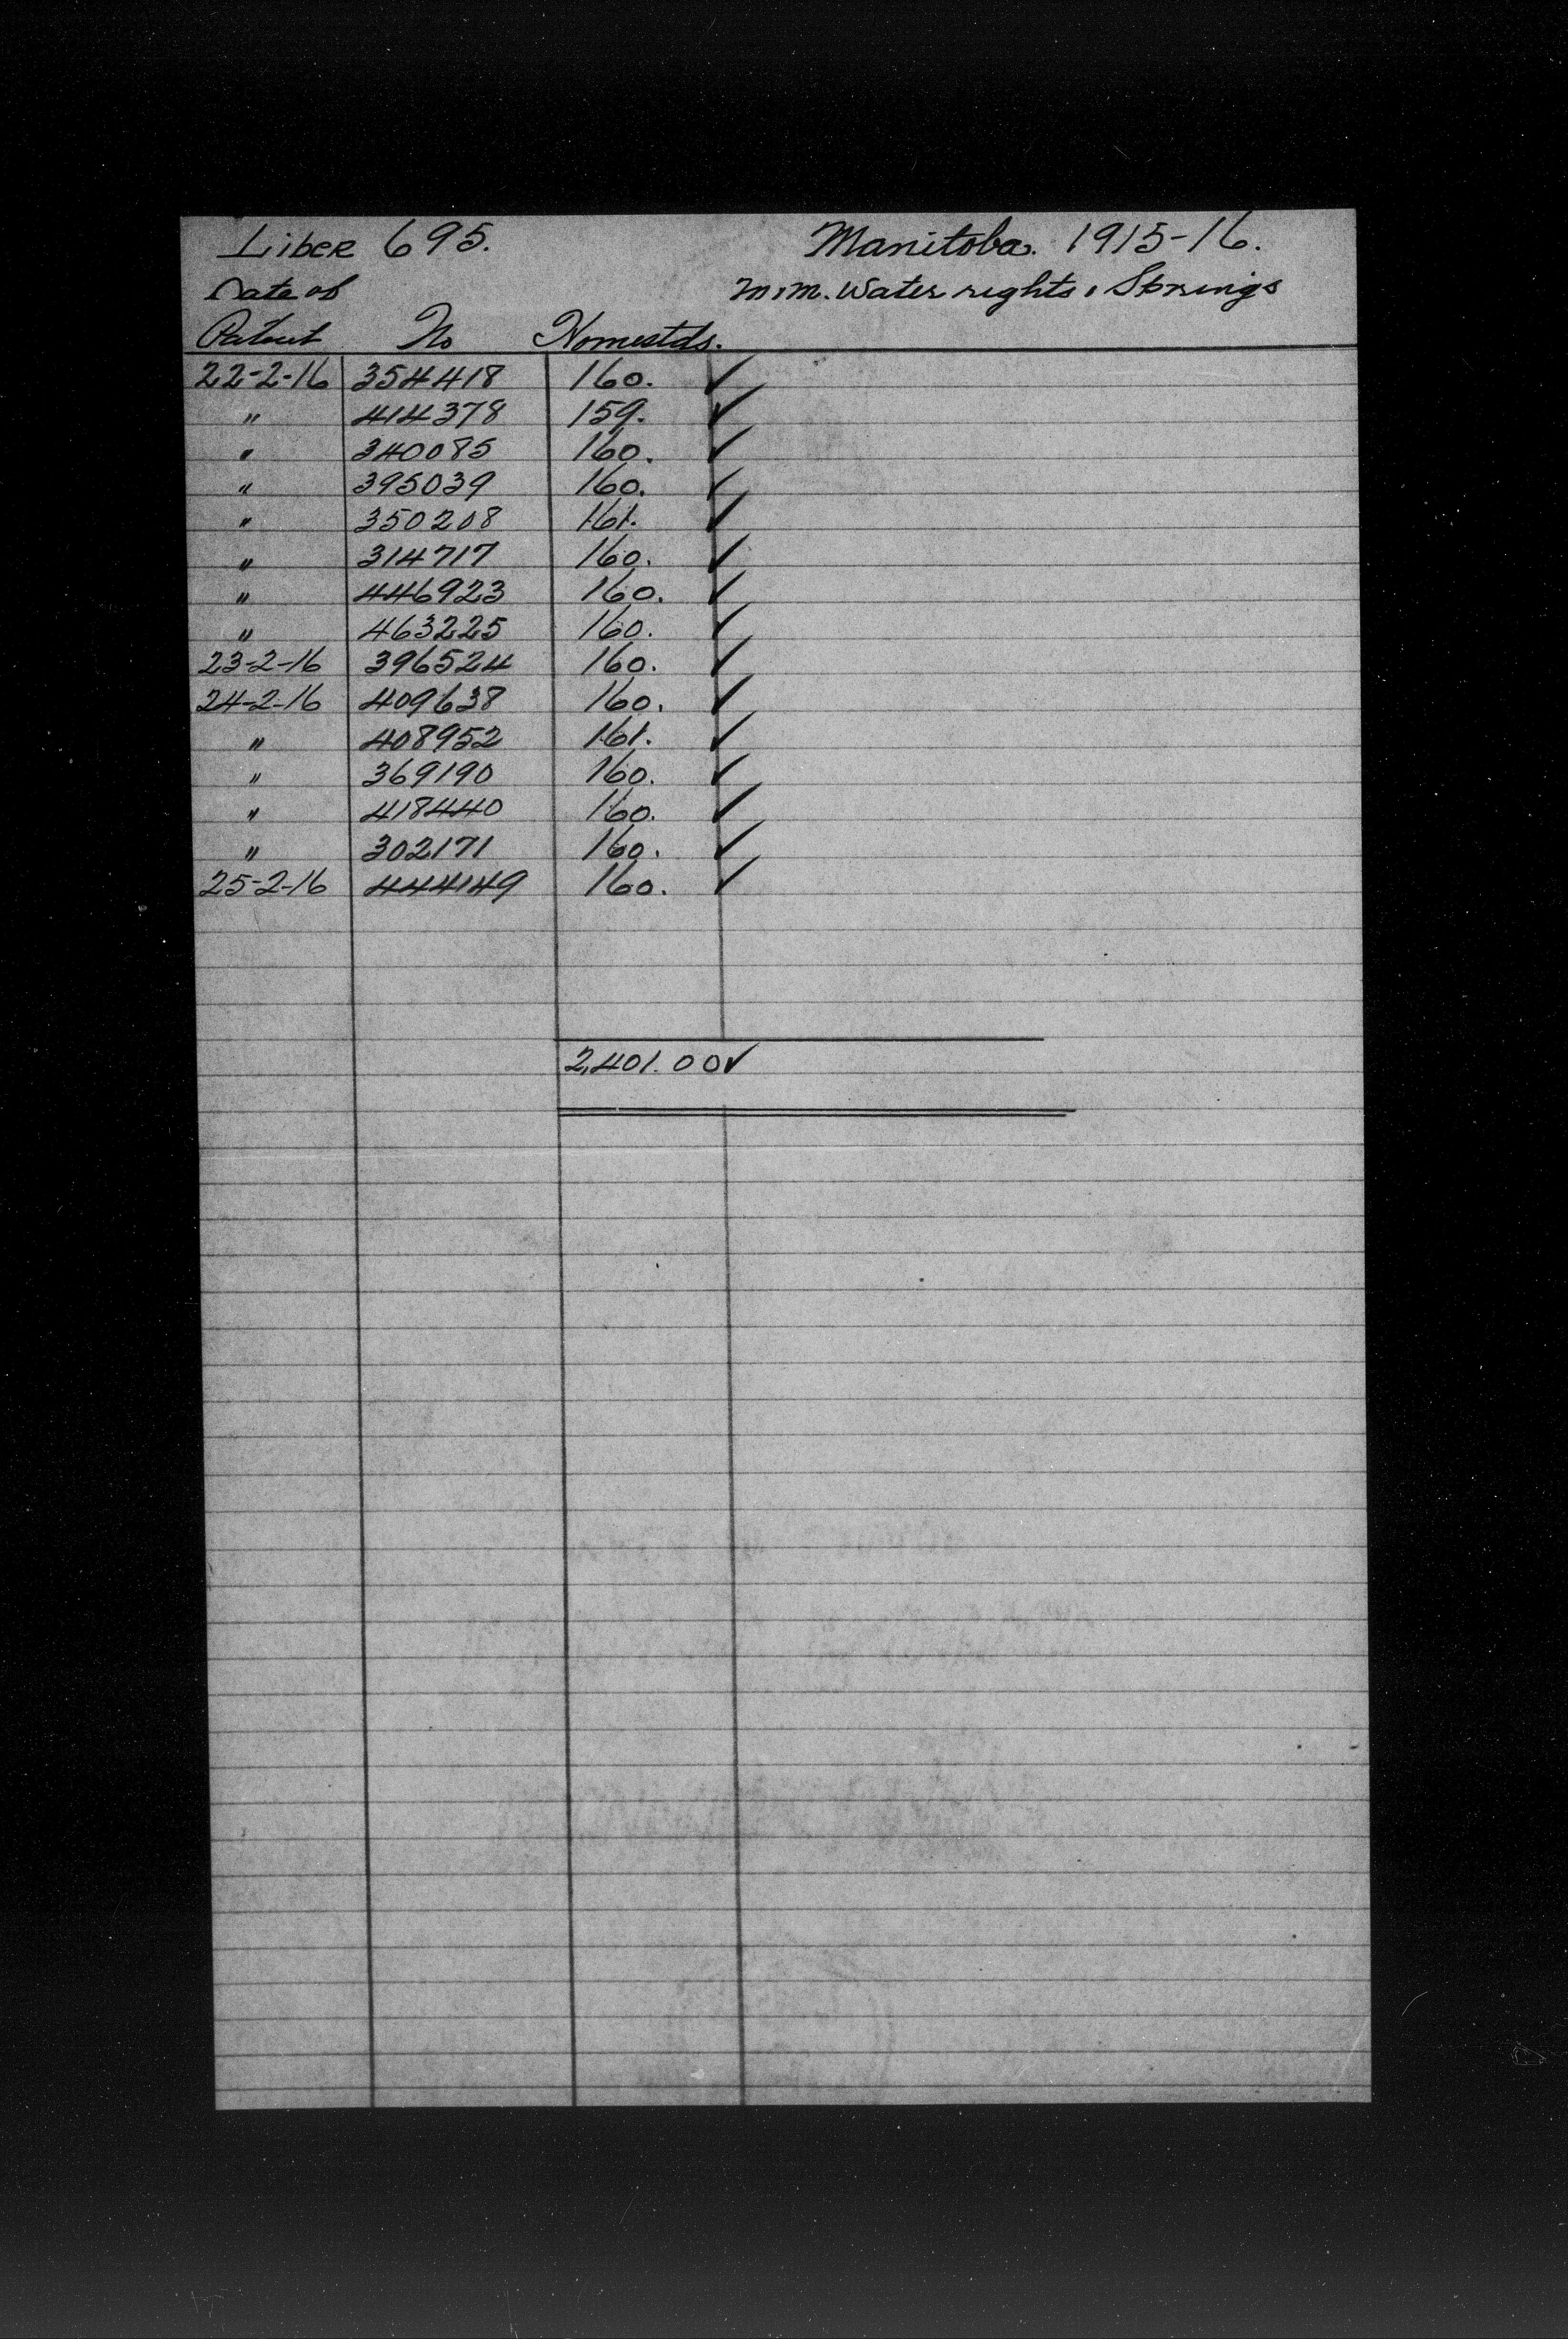 Liber 695. Manitoba. 1915-16.
Date of M.M. Water rights, Springs
Patent No Homestds.
22-2-16 354418 160. ✓
" 414378 159. ✓
" 340085 160. ✓
" 395039 160. ✓
" 350208 161. ✓
" 314717 160. ✓
" 446923 160. ✓
" 463225 160. ✓
23-2-16 396524 160. ✓
24-2-16 409638 160. ✓
" 408952 161. ✓
" 369190 160. ✓
" 418440 160. ✓
" 302171 160. ✓
25-2-16 444149 160. ✓
2,401.00 ✓